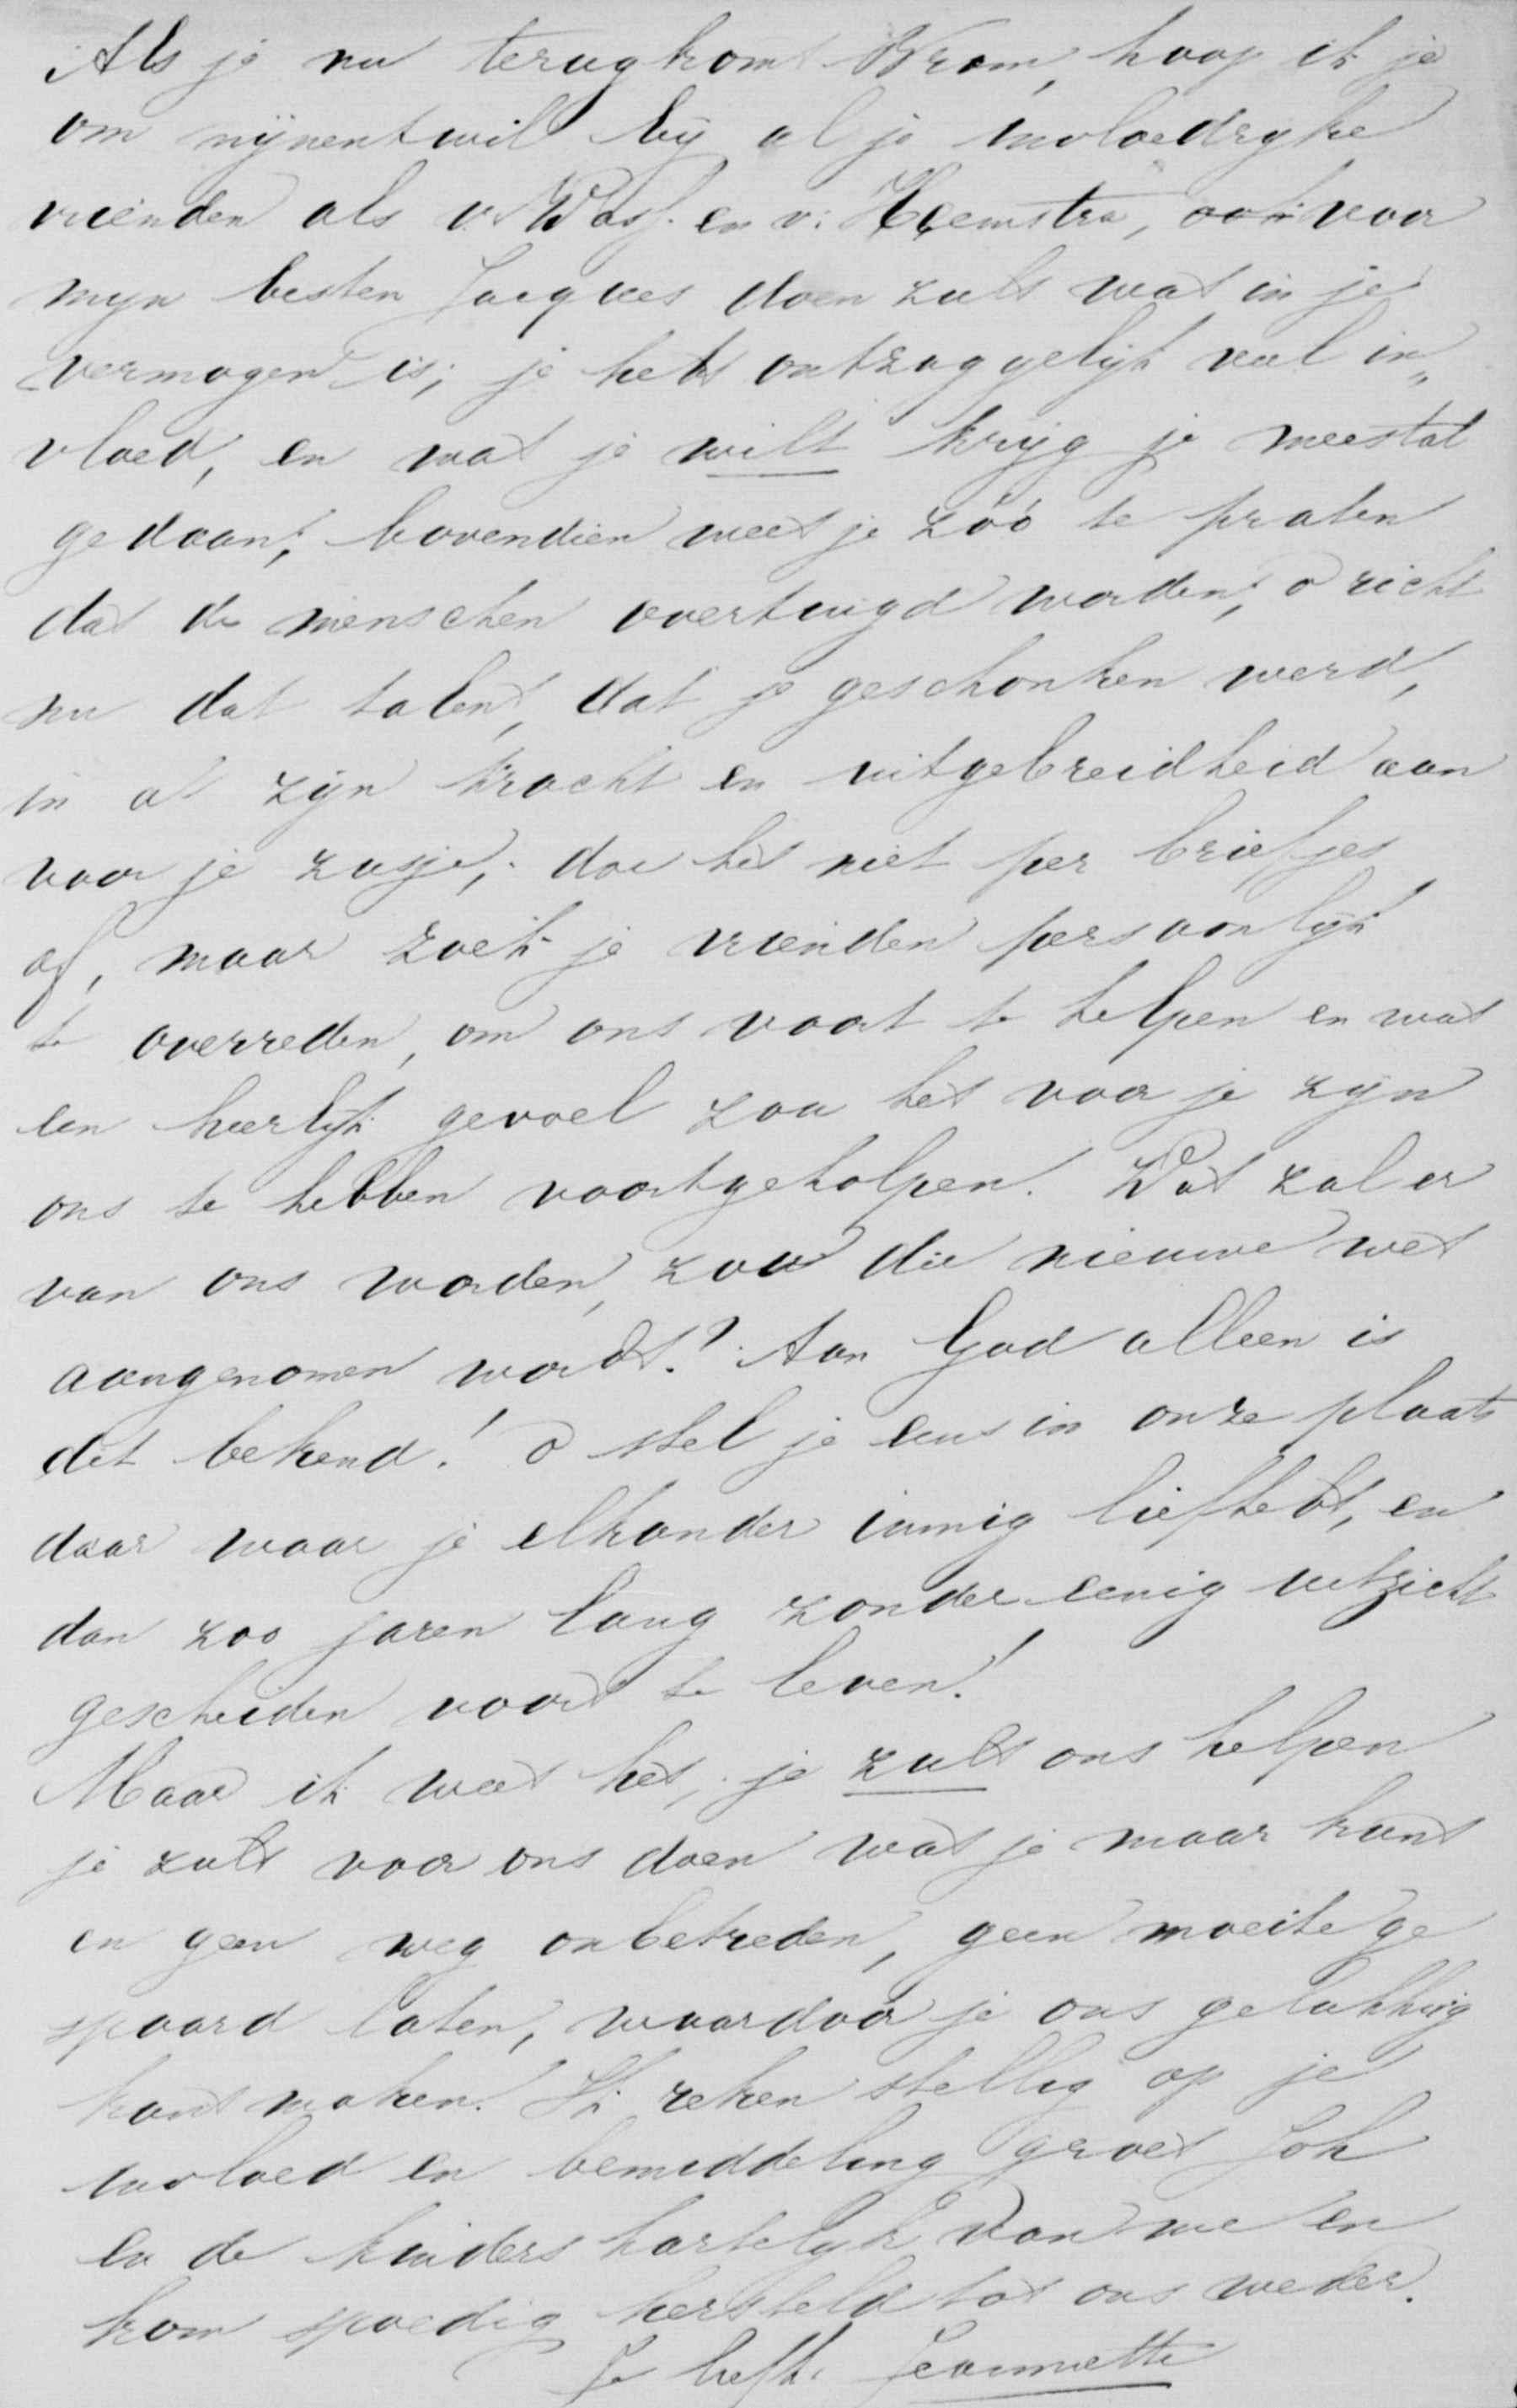 Als je nu terugkomt Bram, hoop ik je
om mijnentwil bij al je invloedryke
vrienden als v. Wass. en v. Heemstra, ook voor
myn besten Jacques doen zult wat in je
vermogen is; je hebt ontzaggelijk veel in„
vloed, en wat je wilt krijg je meestal
gedaan; bovendien weet je zóó te praten
dat de menschen overtuigd worden, o richt
nu dat talent, dat je geschonken werd,
in al zijn kracht en uitgebreidheid aan
voor je zusje; doe het niet per briefjes
af, maar zoek je vrienden persoonlijk
te overreden, om ons voort te helpen en wat
een heerlijk gevoel zou het voor je zijn
ons te hebben voortgeholpen. Wat zal er
van ons worden, zoo die nieuwe wet
aangenomen wordt? Aan God alleen is
dit bekend! o stel je eens in onze plaats
daar waar je elkander innig liefhebt, en
dan zoo jaren lang zonder eenig uitzicht
gescheiden voort te leven!
Maar ik weet het, je zult ons helpen
je zult voor ons doen wat je maar kunt
en geen weg onbetreden, geen moeite ge
spaard laten, waardoor je ons gelukkig
kunt maken. Ik reken stellig op je
invloed en bemiddeling groet Joh
en de kinders hartelyk van me en
kom spoedig hersteld tot ons weder.
Je liefh. Jeannette